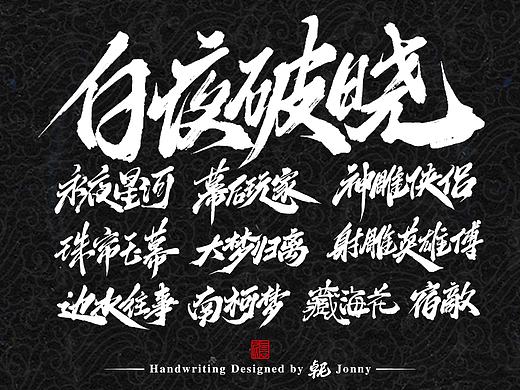 白夜破晓
永夜星河 幕后玩家 神雕侠侣
珠帘玉幕 大梦归离 射雕英雄傳
边水往事 南柯梦 藏海花 宿敵
Handwriting Designed by Jonny